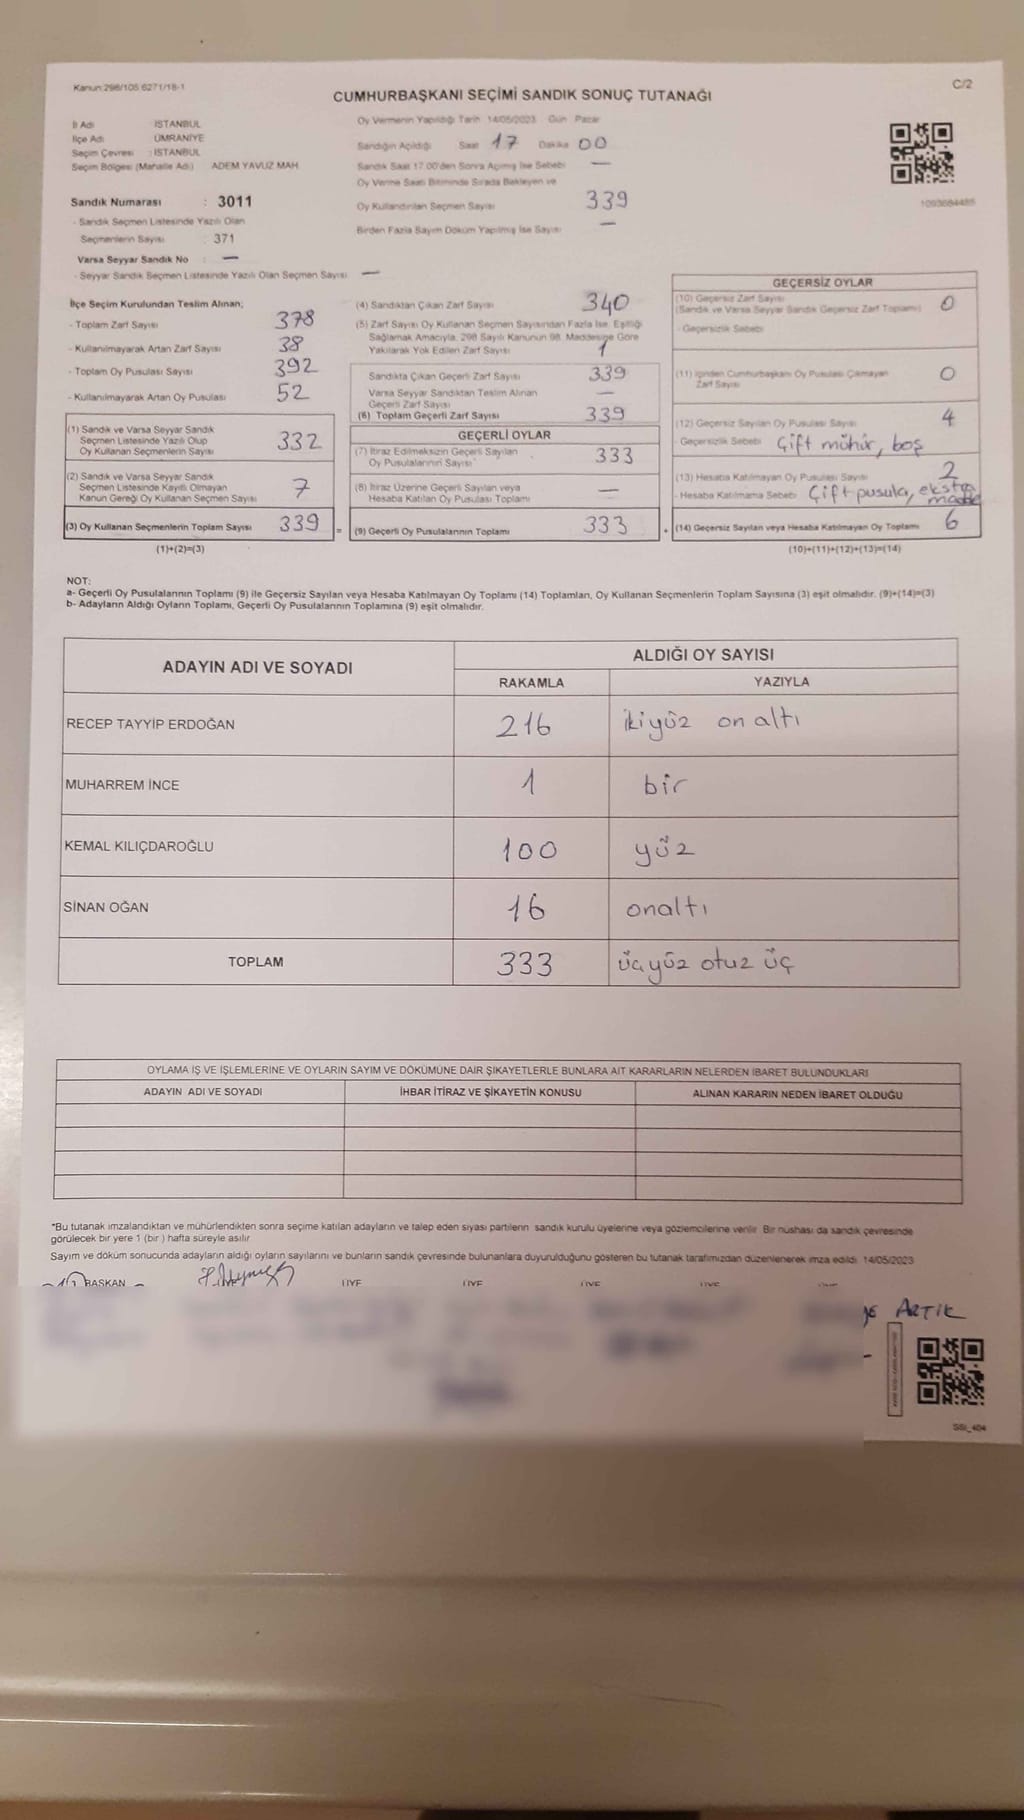 Kanun:298/105 6271/18-1
C/2
CUMHURBAŞKANI SEÇİMİ SANDIK SONUÇ TUTANAĞI
İl Adı : İSTANBUL
İlçe Adı : ÜMRANİYE
Seçim Çevresi : İSTANBUL
Seçim Bölgesi (Mahalle Adı) : ADEM YAVUZ MAH.
Sandık Numarası : 3011
- Sandık Seçmen Listesinde Yazılı Olan
Seçmenlerin Sayısı : 371
Varsa Seyyar Sandık No : —
- Seyyar Sandık Seçmen Listesinde Yazılı Olan Seçmen Sayısı : —
Oy Vermenin Yapıldığı Tarih 14/05/2023 Gün Pazar
Sandığın Açıldığı Saat 17 Dakika 00
Sandık Saat 17.00'den Sonra Açılmış İse Sebebi —
Oy Verme Saati Bitiminde Sırada Bekleyen ve
Oy Kullandırılan Seçmen Sayısı 339
Birden Fazla Sayım Döküm Yapılmış İse Sayısı —
1093684485
İlçe Seçim Kurulundan Teslim Alınan;
- Toplam Zarf Sayısı 378
- Kullanılmayarak Artan Zarf Sayısı 38
- Toplam Oy Pusulası Sayısı 392
- Kullanılmayarak Artan Oy Pusulası 52
(1) Sandık ve Varsa Seyyar Sandık
Seçmen Listesinde Yazılı Olup
Oy Kullanan Seçmenlerin Sayısı 332
(2) Sandık ve Varsa Seyyar Sandık
Seçmen Listesinde Kayıtlı Olmayan
Kanun Gereği Oy Kullanan Seçmen Sayısı 7
(3) Oy Kullanan Seçmenlerin Toplam Sayısı 339 =
(1)+(2)=(3)
(4) Sandıktan Çıkan Zarf Sayısı 340
(5) Zarf Sayısı Oy Kullanan Seçmen Sayısından Fazla İse, Eşitliği
Sağlamak Amacıyla, 298 Sayılı Kanunun 98. Maddesine Göre
Yakılarak Yok Edilen Zarf Sayısı 1
Sandıkta Çıkan Geçerli Zarf Sayısı 339
Varsa Seyyar Sandıktan Teslim Alınan
Geçerli Zarf Sayısı —
(6) Toplam Geçerli Zarf Sayısı 339
GEÇERLİ OYLAR
(7) İtiraz Edilmeksizin Geçerli Sayılan
Oy Pusulalarının Sayısı 333
(8) İtiraz Üzerine Geçerli Sayılan veya
Hesaba Katılan Oy Pusulası Toplamı —
(9) Geçerli Oy Pusulalarının Toplamı 333 +
GEÇERSİZ OYLAR
(10) Geçersiz Zarf Sayısı 0
(Sandık ve Varsa Seyyar Sandık Geçersiz Zarf Toplamı)
- Geçersizlik Sebebi
(11) İçinden Cumhurbaşkanı Oy Pusulası Çıkmayan
Zarf Sayısı 0
(12) Geçersiz Sayılan Oy Pusulası Sayısı 4
Geçersizlik Sebebi Çift mühür, boş
(13) Hesaba Katılmayan Oy Pusulası Sayısı 2
- Hesaba Katılmama Sebebi Çift pusula, ekstra madde
(14) Geçersiz Sayılan veya Hesaba Katılmayan Oy Toplamı 6
(10)+(11)+(12)+(13)=(14)
NOT:
a- Geçerli Oy Pusulalarının Toplamı (9) ile Geçersiz Sayılan veya Hesaba Katılmayan Oy Toplamı (14) Toplamları, Oy Kullanan Seçmenlerin Toplam Sayısına (3) eşit olmalıdır. (9)+(14)=(3)
b- Adayların Aldığı Oyların Toplamı, Geçerli Oy Pusulalarının Toplamına (9) eşit olmalıdır.
ADAYIN ADI VE SOYADI
ALDIĞI OY SAYISI
RAKAMLA YAZIYLA
RECEP TAYYİP ERDOĞAN 216 ikiyüz on altı
MUHARREM İNCE 1 bir
KEMAL KILIÇDAROĞLU 100 yüz
SİNAN OĞAN 16 onaltı
TOPLAM 333 üçyüz otuz üç
OYLAMA İŞ VE İŞLEMLERİNE VE OYLARIN SAYIM VE DÖKÜMÜNE DAİR ŞİKAYETLERLE BUNLARA AİT KARARLARIN NELERDEN İBARET BULUNDUKLARI
ADAYIN ADI VE SOYADI İHBAR İTİRAZ VE ŞİKAYETİN KONUSU ALINAN KARARIN NEDEN İBARET OLDUĞU
*Bu tutanak imzalandıktan ve mühürlendikten sonra seçime katılan adayların ve talep eden siyasi partilerin sandık kurulu üyelerine veya gözlemcilerine verilir. Bir nüshası da sandık çevresinde
görülecek bir yere 1 (bir ) hafta süreyle asılır.
Sayım ve döküm sonucunda adayların aldığı oyların sayılarını ve bunların sandık çevresinde bulunanlara duyurulduğunu gösteren bu tutanak tarafımızdan düzenlenerek imza edildi. 14/05/2023
BAŞKAN ÜYE ÜYE ÜYE ÜYE
ARTIK
SSI_404